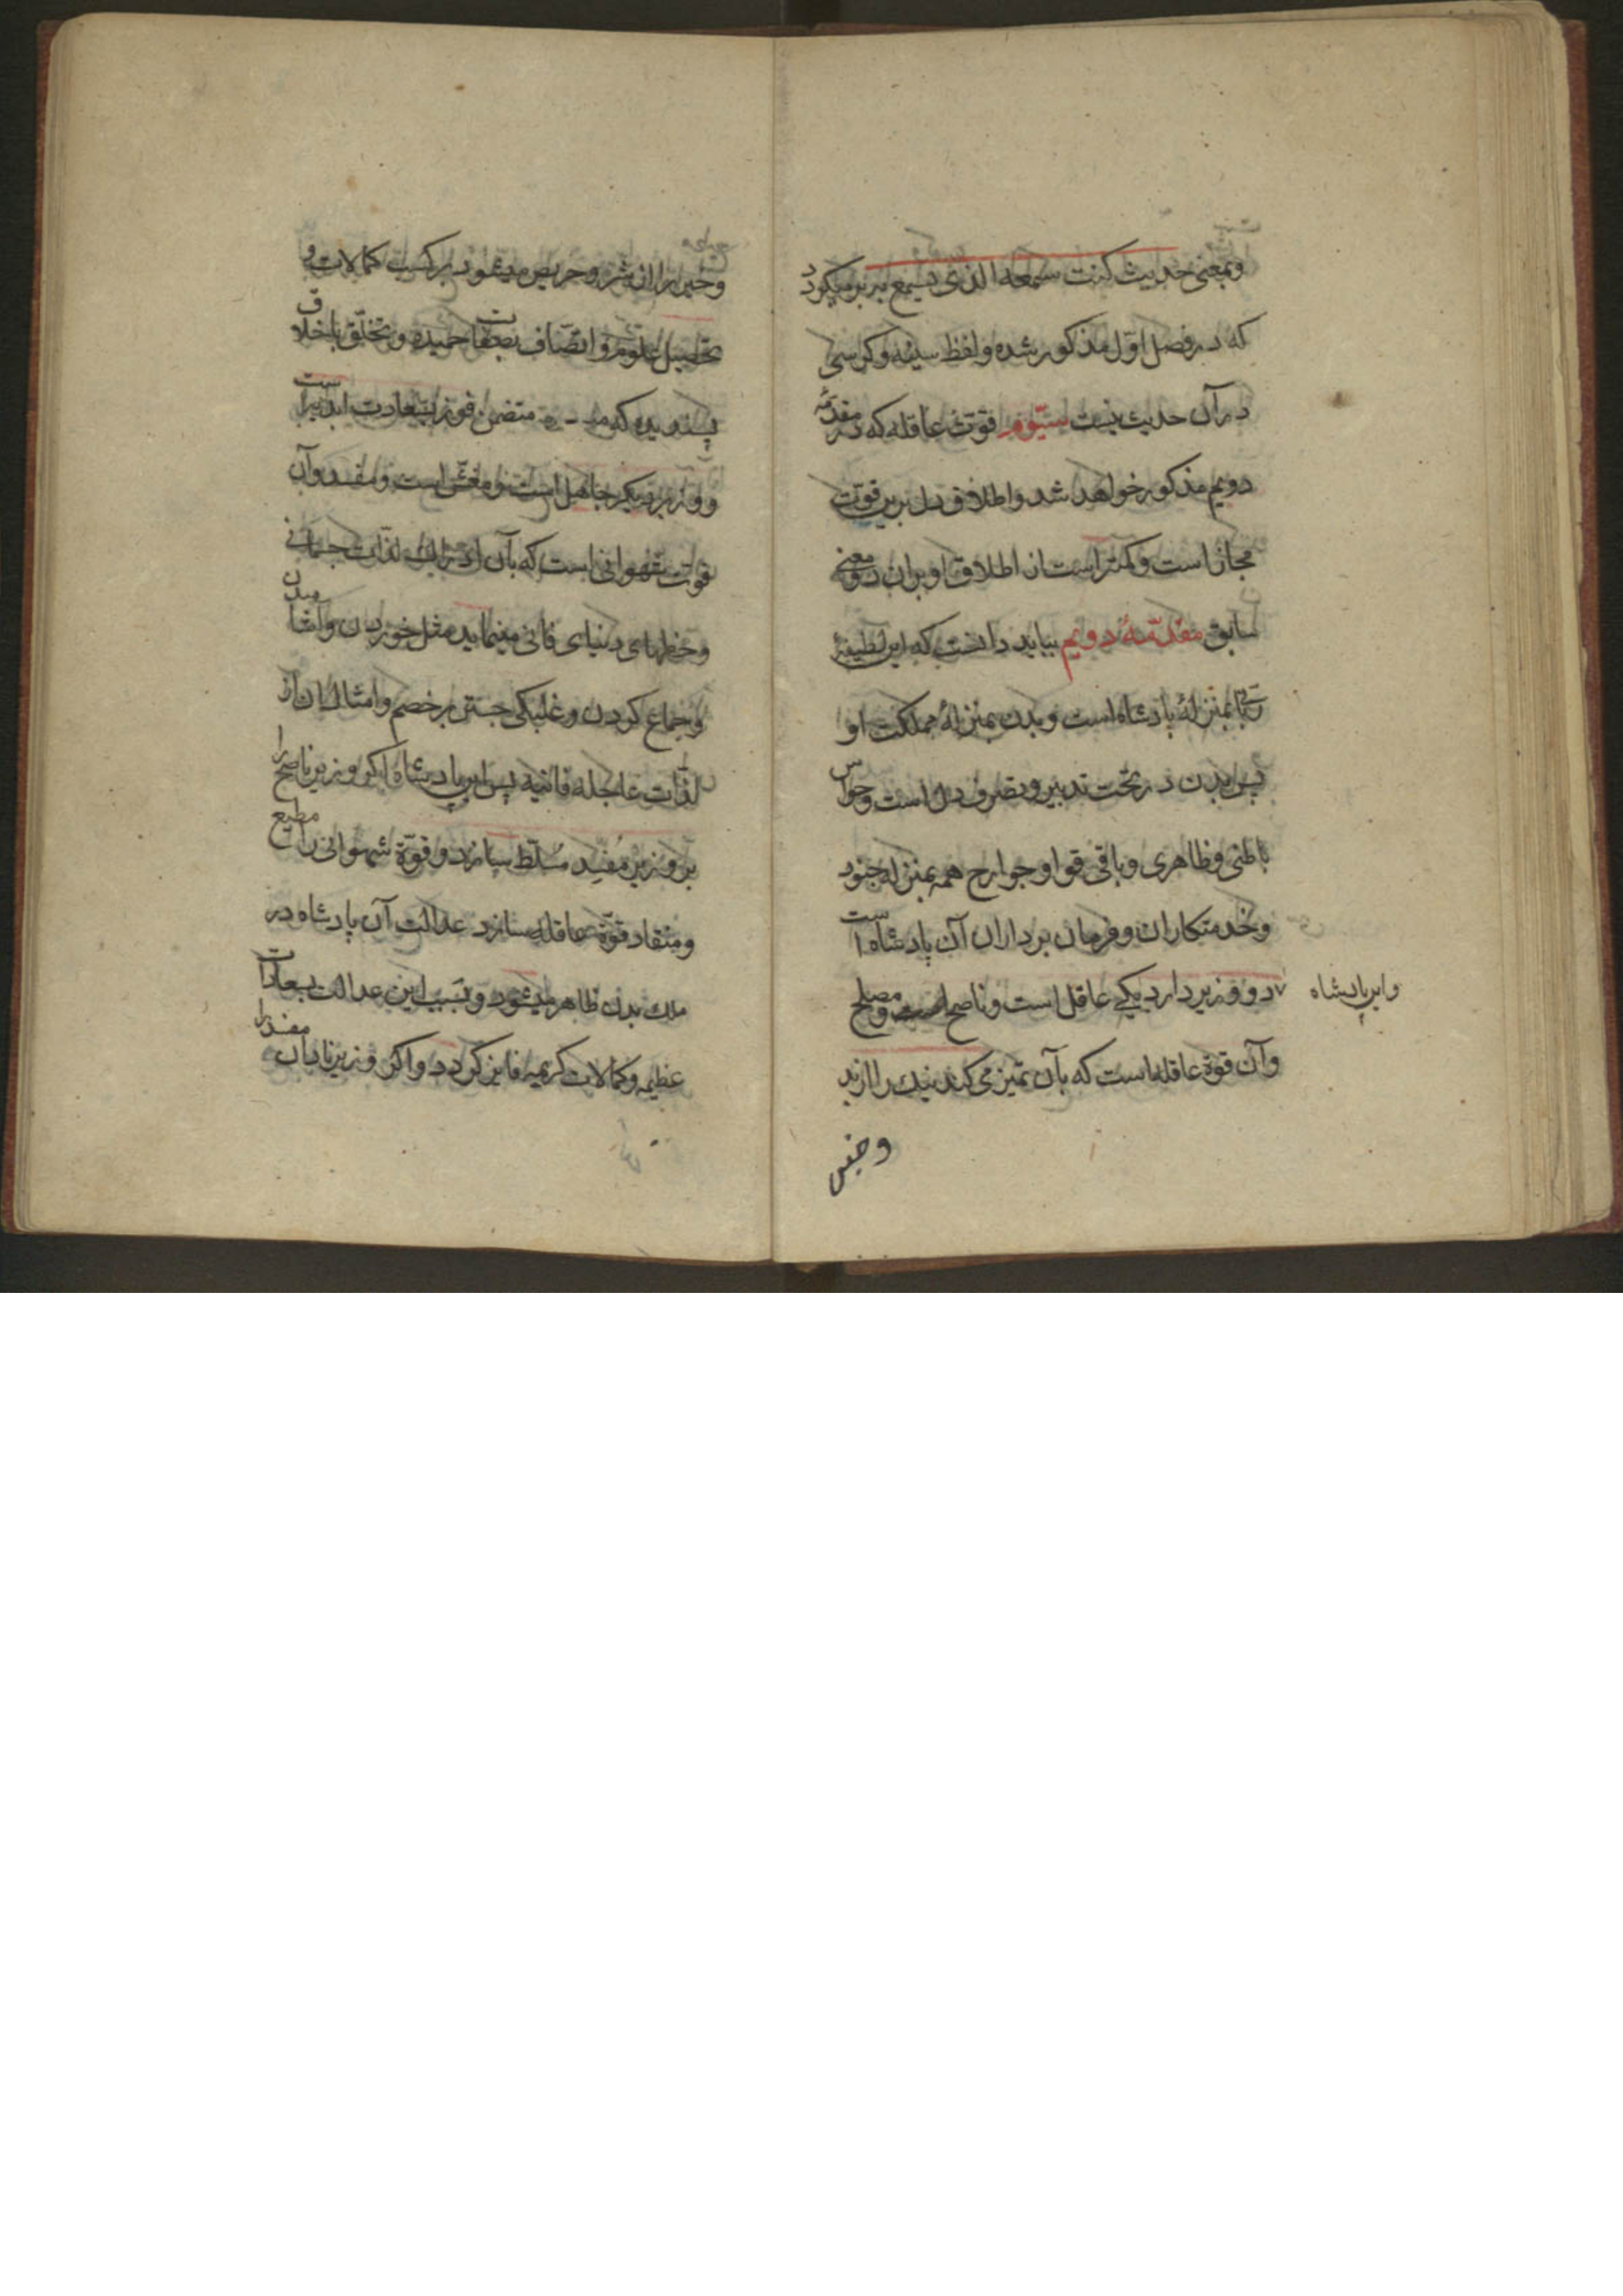 وبمعنی حدیث کنت سمعه الذی یسمع به برمیکردد
که در فصل اوّل مذکور شده ولفظ سینه وکرسی
در آن حدیث نیست سیّوم قوّت عاقله که در مقدّمهٔ
دویم مذکور خواهد شد واطلاق دل برین قوّت
مجاز است وکمتر است از اطلاق او بران دو معنی
سابق مقدّمهٔ دویم بباید دانست که این لطیفهٔ
ربّانی بمنزلهٔ پادشاه است وبدن بمنزلهٔ مملکت او
پس بدن در تحت تدبیر وتصرف دل است وحواس
باطنی وظاهری وباقی قوا وجوارح همه بمنزله جنود
وخدمتکاران وفرمان برداران آن پادشاه است
واین پادشاه
دو وزیر دارد یکی عاقل است وناصح است ومصلح
وآن قوة عاقله است که بآن تمیز می کند نیک را از بد
وخیر
وخیر را از شر وحریص میشود بر کسب کمالات و
تحصیل علوم واتّصاف بصفات حمیده وتخلّق باخلاق
پسندیده که متضمن فوز بسعادت ابدیست
ووزیر دیگر جاهل است ومغشّ است ومفسد وآن
قوّت شهوانی است که بآن ادراک لذّات جسمانی
وحظهای دنیای فانی مینماید مثل خوردن وآشامیدن
وجماع کردن وغلبگی جستن بر خصم وامثال آن از
لذّات عاجله فانیه پس این پادشاه اکر وزیر ناصح را
بر وزیر مفسد مسلّط سازد وقوّة شهوانی را مطیع
ومنقاد قوّة عاقله سازد عدالت آن پادشاه در
ملک بدن ظاهر میشود وبسبب این عدالت بسعادات
عظیمه وکمالات کریمه فایز کردد واکر وزیر نادان مفسد را